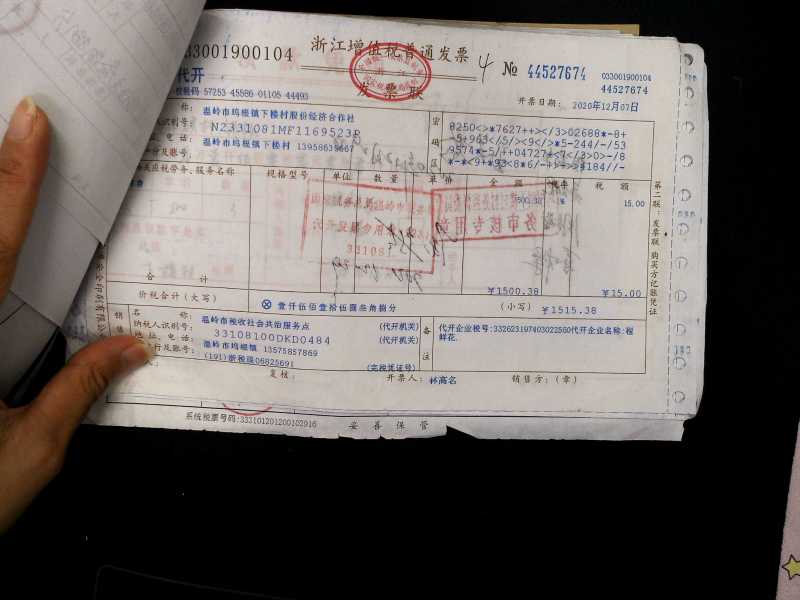 033001900104 浙江增值税普通发票 4 № 44527674 033001900104
44527674
代开 发票联 开票日期: 2020年12月07日
校验码 57253 45586 01105 44493
温岭市坞根镇下楼村股份经济合作社
识别号: N2331081MF1169523R
、电话: 温岭市坞根镇下楼村 13958638667
行及账号:
密码区
8250<>*7627++></3>02688*-8+
-5+963</5/><9</>*5-244-/-53
9574*-5/++04727+<7</3>0>-/8
*-*<9+*93<8*6/-++>+4184/-
应税劳务、服务名称 规格型号 单位 数量 单价 金额 税率 税额
1500.38 15.00
代开发票专用章
331081
务审核专用章
合计 ¥1500.38 ¥15.00
价税合计(大写) ⊗ 壹仟伍佰壹拾伍圆叁角捌分 (小写) ¥1515.38
名称: 温岭市税收社会共治服务点 (代开机关)
纳税人识别号: 33108100DKD0484 (代开机关)
地址、电话: 温岭市坞根镇 13575857869
行及账号: (191)浙税现06825691 (完税凭证号)
备注
代开企业税号:332623197403022560代开企业名称:程
鲜花
复核: 开票人: 林高名 销售方:(章)
第二联:发票联 购买方记账凭证
系统税票号码:333101201200102016 妥善保管